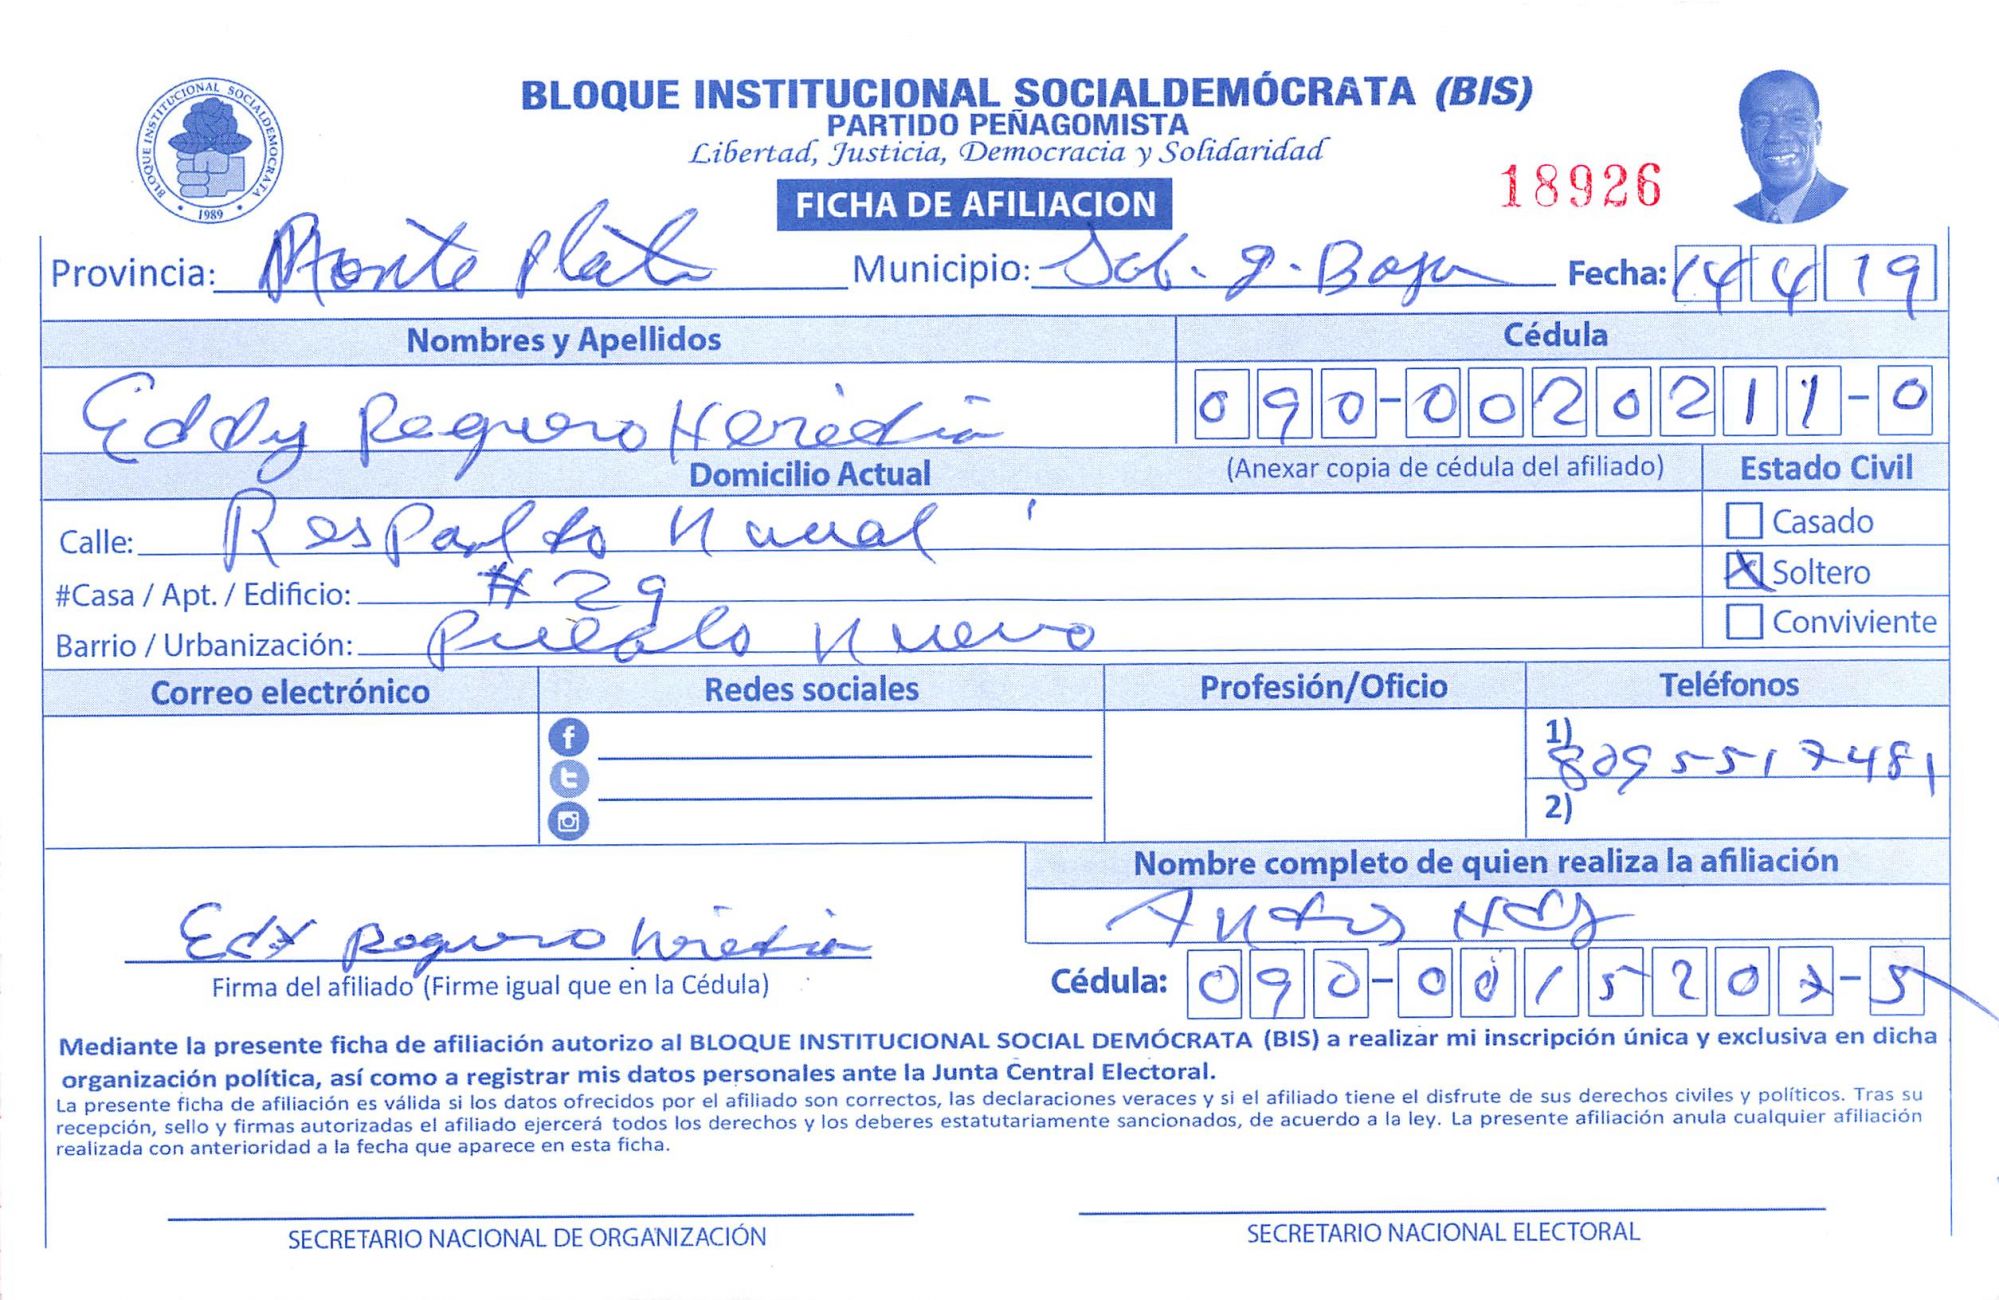 BLOQUE INSTITUCIONAL SOCIALDEMÓCRATA
1989
BLOQUE INSTITUCIONAL SOCIALDEMÓCRATA (BIS)
PARTIDO PEÑAGOMISTA
Libertad, Justicia, Democracia y Solidaridad
FICHA DE AFILIACION
18926
Provincia: Monte Plata Municipio: Sab. g. Boya Fecha: 14 4 19
Nombres y Apellidos Cédula
Eddy Reguero Heredia 090-0020211-0
Domicilio Actual (Anexar copia de cédula del afiliado) Estado Civil
Calle: Respaldo Casado
#Casa / Apt. / Edificio: #29 Soltero
Barrio / Urbanización: Pueblo Nuevo Conviviente
Correo electrónico Redes sociales Profesión/Oficio Teléfonos
1) 809 551 7481
2)
Nombre completo de quien realiza la afiliación
Edy Reguero heredia
Firma del afiliado (Firme igual que en la Cédula) Cédula: 090-0015207-5
Mediante la presente ficha de afiliación autorizo al BLOQUE INSTITUCIONAL SOCIAL DEMÓCRATA (BIS) a realizar mi inscripción única y exclusiva en dicha
organización política, así como a registrar mis datos personales ante la Junta Central Electoral.
La presente ficha de afiliación es válida si los datos ofrecidos por el afiliado son correctos, las declaraciones veraces y si el afiliado tiene el disfrute de sus derechos civiles y políticos. Tras su
recepción, sello y firmas autorizadas el afiliado ejercerá todos los derechos y los deberes estatutariamente sancionados, de acuerdo a la ley. La presente afiliación anula cualquier afiliación
realizada con anterioridad a la fecha que aparece en esta ficha.
SECRETARIO NACIONAL DE ORGANIZACIÓN SECRETARIO NACIONAL ELECTORAL